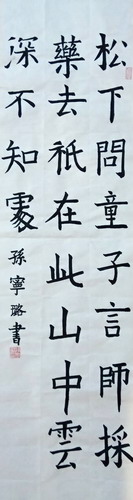 松下問童子言師採
藥去祇在此山中雲
深不知處
孫寧璐書